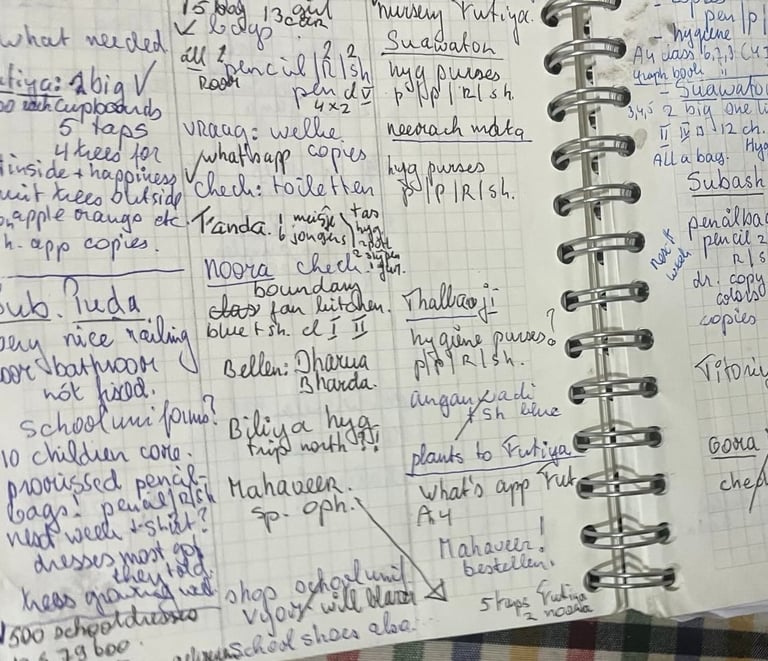 what needed
tiya: 2 big ✓
cupboards
5 taps
4 trees for
inside + happiness
fruit trees outside
apple orange etc.
app copies.
Sub. Puda
very nice railing
door bathroom
not fixed.
school uniforms?
10 children come.
promissed pencil-
bags! pencil/R/sh
next week t-shirt?
dresses most got
they told.
trees growing well
1500 schooldresses
79600.
15 boy 13 girl
✓ bags
all 2 pencil/R/sh
Room pen cl V
4x2
vraag: welke
✓ whatsapp copies
✓ check: toiletten
Tanda. 1 meisje tas
6 jongens hyg
Noora check
boundary
fan kitchen.
blue t sh. cl I II
Bellen: Dharua
Bharda.
Biliya hyg
trip north?!
Mahaveer.
sp. oph.
shop school unif
school shoes also
nursery Futiya.
Suawaton
hyg purses
p/p/R/sh.
neemach mata
hyg purses
p/P/R/sh.
Thalbaoji
hygiene purses?
p/p/R/sh.
anganwadi
t sh blue
plants to Futiya
what's app Fut
A4
Mahaveer!
bestellen.
5 taps Futiya
2 noora
pen/p/
- hygiene
A4 class 6,7,8
graph book
- Suawato
3,4,5 2 big one li
12 ch.
All a bag. Hyg
Subash
next
week
pencil 2
R/s
dr. copy
colors
copies
Gora
che